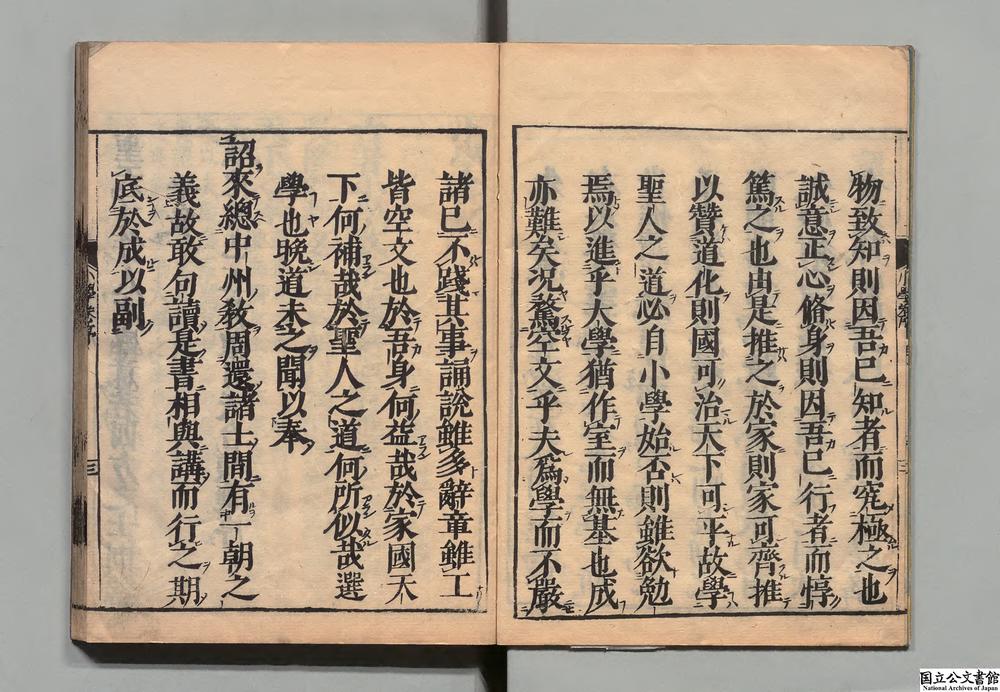 物致知則因吾已知者而究極之也
誠意正心脩身則因吾已行者而惇
篤之也由是推之於家則家可齊推
以贊道化則國可治天下可平故學
聖人之道必自小學始否則雖欲勉
焉以進乎大學猶作室而無基也成
亦難矣况騖空文乎夫爲學而不嚴
諸己不踐其事誦說雖多辭章雖工
皆空文也於吾身何益哉於家國天
下何補哉於聖人之道何所似哉選
學也晚道未之聞以奉
詔來總中州敎周還諸士間有一朝之
義故敢句讀是書相與講而行之期
底於成以副
三
三
国立公文書館
National Archives of Japan